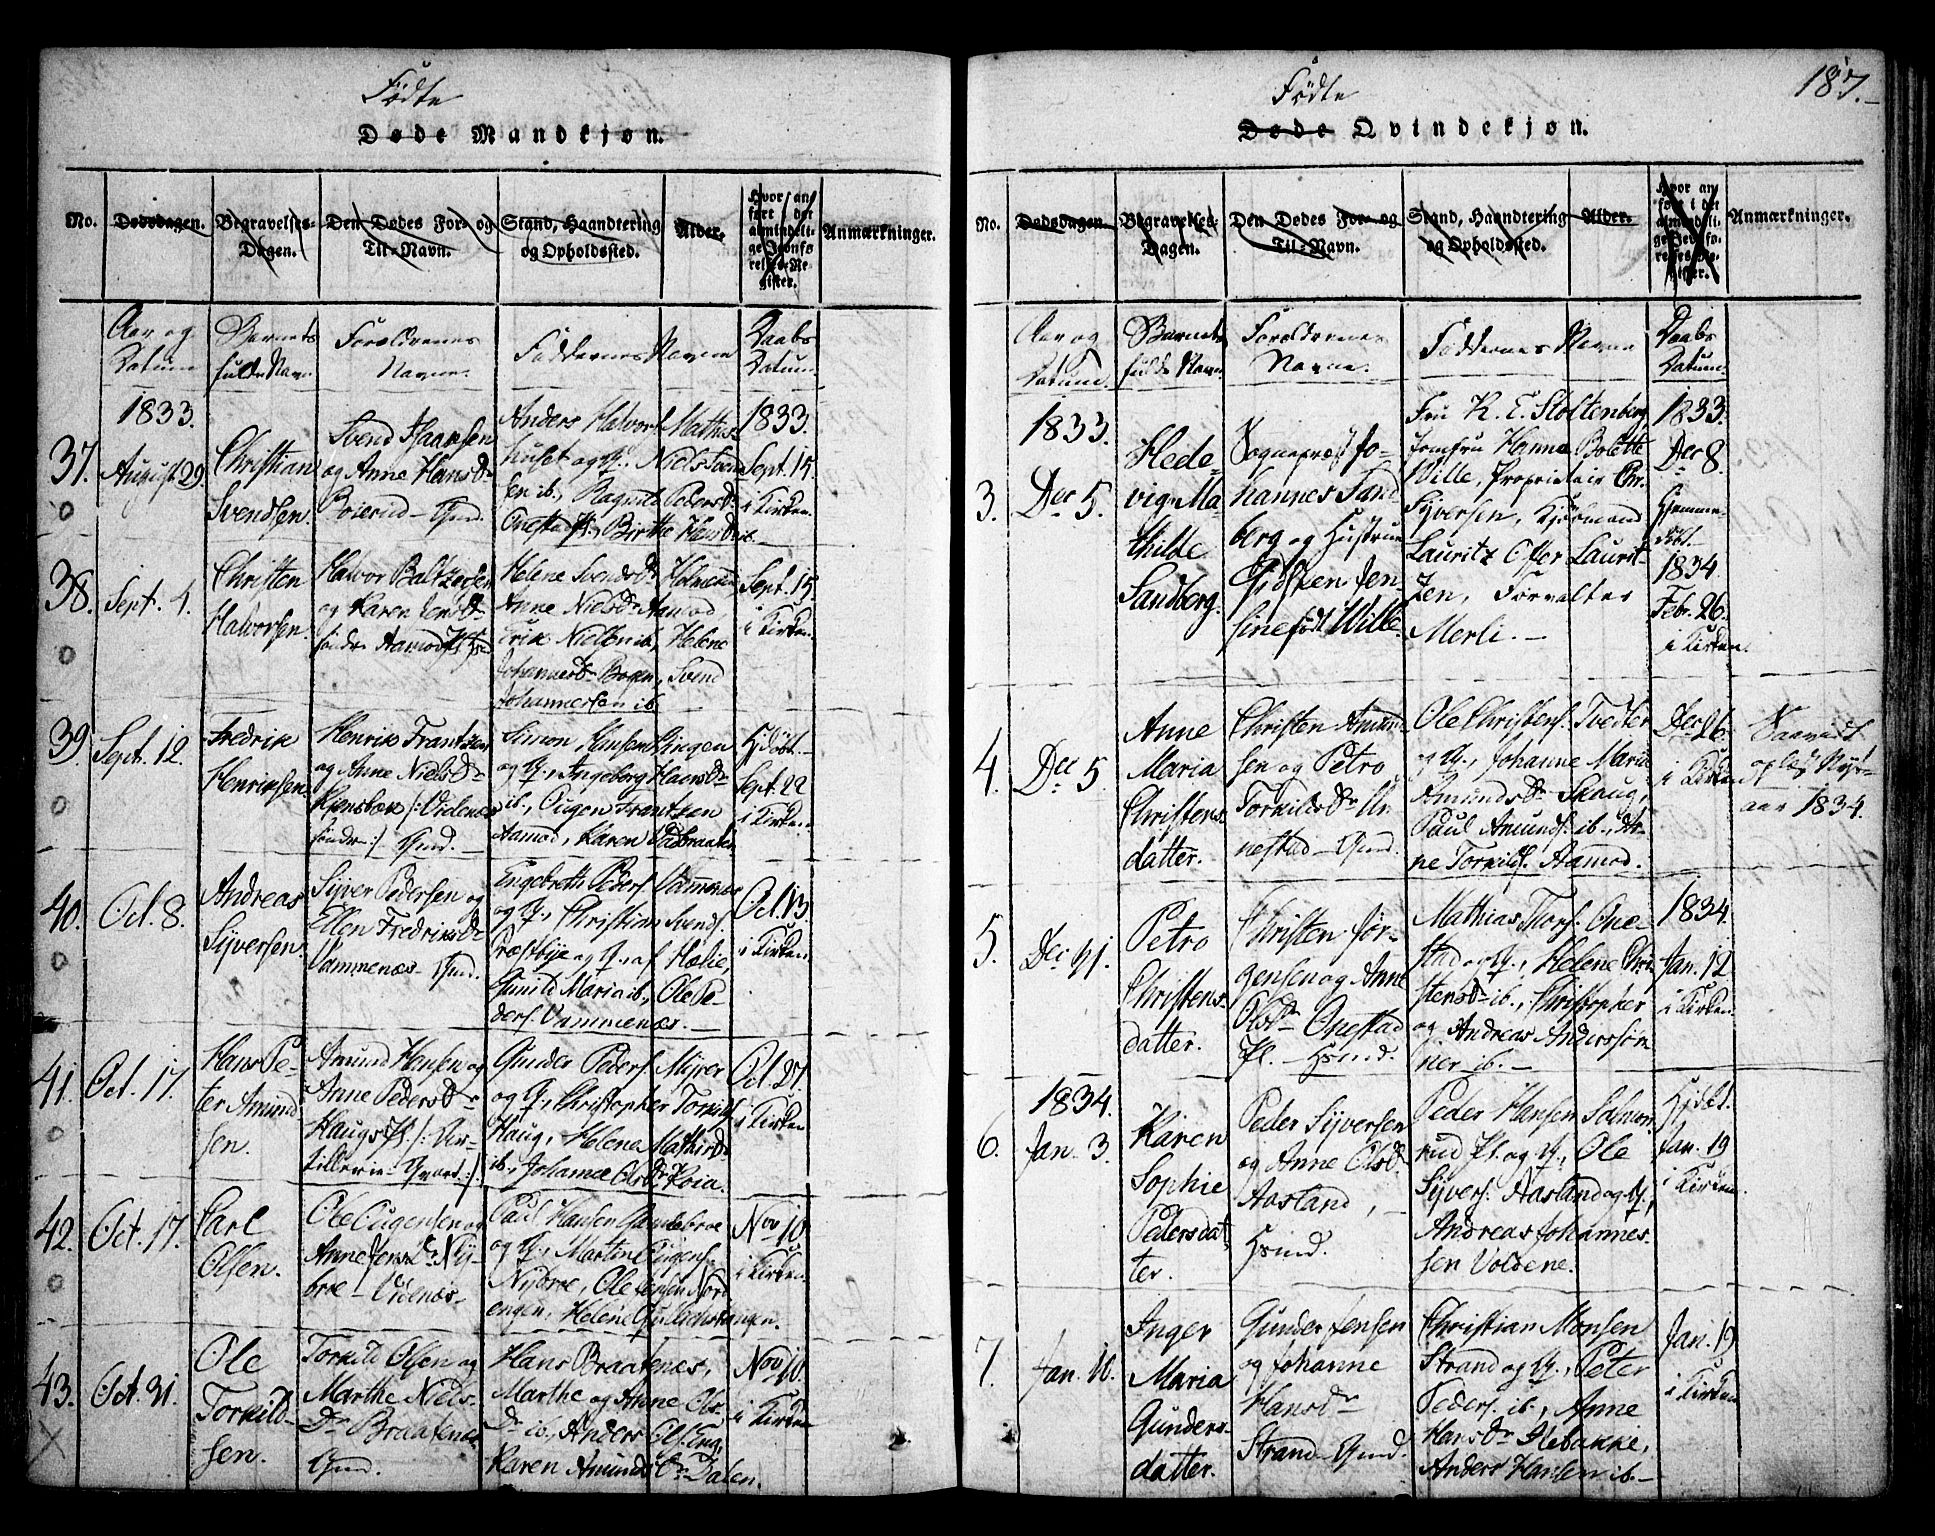 Fødte
Døde Mandkjøn.
No.
Dødsdagen.
Begravelses-
Dagen.
Den Dødes For- og
Til-Navn.
Stand, Haandtering
og Opholdssted.
Alder.
Hvor an
ført i det
almindeli-
ge Jevnfø
relses-Re
gister.
Anmærkninger.
Aar og
Datum
Barnets
fulde Navn
Forældrenes
Navne.
Faddernes Navne
Daabs
Datum.
1833.
37.
August 29
Christian
Svendsen.
Svend Haansen
og Anne Hansdr
Anders Halvors. Mathis-
huset og H., Niels Sven
sen ib., Ragnild Pedersdr
Onestad Pl., Birthe Hansdr ib.
1833.
Sept. 15.
i Kirken.
38.
Sept. 4.
Christen
Halvorsen.
Halvor Baltzersen
og Karen
søndre Aamodt Pl.
Helene Svendsdr Holmen
Anne Nielsdr Aamod
Erik Nielsen ib., Helene
Johannesdr Bogen, Svend
Johannessen ib.
Sept. 15.
i Kirken.
39.
Sept. 12.
Fredrik
Henriksen.
Henrik Frantzen
og Anne Nielsdr
Simon Hansen Lingen
og H., Ingeborg Hansdr
ib., Ougen Frantzen
Aamod, Karen
Hjdøbt.
Sept. 22
i Kirken.
40.
Oct. 8.
Andreas
Syversen.
Syver Pedersen og
Ellen Fredriksdr
Vammenæs
Engebreth Peders. Vammenæs
og H., Christian Svends.
Præstbye og H., af Hælie,
Gunild Maria ib., Ole Pe-
ders. Vammenæs.
Oct. 13.
i Kirken.
41.
Oct. 17.
Hans Pe-
ter Amund
sen.
Amund Hansen og
Anne Pedersdr
Haugs Pl.
Gunder Peders. Myrer
og H., Christopher Torkilds.
Haug, Helene Mathisdr
ib., Johanne Olsdr Roia.
Oct. 27.
i Kirken
42.
Oct. 17.
Carl
Olsen.
Ole Ougensen og
Anne Jensdr Ny-
broe
Paul Hansen
og H., Martine Ougens.
Nybroe, Ole Jensen Nord
engen, Helene
Nov 10.
i Kirken.
43.
Oct. 31.
Ole
Torkild-
sen.
Torkild Olsen og
Marthe Niels-
Dr Braatenæs
Hans Braatenæs,
Marthe og Anne Ols
Dr ib., Anders Ols. Eng,
Karen Amunds Dr Dalen.
Nov 10.
i Kirken
187.
Fødte
Døde Qvindekjøn.
No.
Dødsdagen.
Begravelses-
Dagen.
Den Dødes For- og
Til-Navn.
Stand, Haandtering
og Opholdssted.
Alder.
Hvor an
ført i det
almindeli-
ge Jevnfø-
relses-Re-
gister.
Anmærkninger.
Aar og
Datum.
Barnets
fulde Navn.
Forældrenes
Navne.
Faddernes Navne
Daabs
Datum.
3.
1833.
Dec 5.
Hede-
vig Ma-
thilde
Sandberg.
Sognepræst Jo-
hannes Sand
berg og Hustrue
Gidsken Jen-
sine født Wille.
Fru K. E. Stoltenberg,
Jomfru Hanne Bolette
Wille, Proprietair Chr.
Syversen, Kjøbmand
Lauritz Ofter Laurit-
zen, Forvalter
Merli.
1833.
Dec 8.
Hjemme
døbt.
1834.
Febr. 26.
i Kirken.
4.
Dec 5.
Anne
Maria
Christens-
datter.
Christen Amund-
sen og Petro
Torkildsdr Ur-
nestad
Ole Christens. Tvedter
og H., Johanne Marie
Amundsdr Skaug,
Paul Amunds. ib., Ar-
ne Torkilds. Aamod.
Dec 26.
i Kirken
aar 1834.
5.
Petro
Christens-
datter.
Christen Jør-
gensen og Anne
Olsdr Onestad
Pl.
Mathias Thors. One-
stad og H., Helene Chri-
stensdr ib., Christopher
og Andreas Anderssøn-
ner ib.
1834.
Jan. 12
i Kirken.
6.
1834.
Jan. 3.
Karen
Sophie
Pedersdat
ter.
Peder Syversen
og Anne Olsdr
Aasland,
Peder Hansen Solmon
rud Pl. og H., Ole
Syvers. Aasland og H.,
Andreas Johannes-
sen Voldene.
Hjdøbt.
Jan. 19
i Kirken.
7.
Jan. 10.
Inger
Maria
Gunders-
datter.
Gunder Jensen
og Johanne
Hansdr
Strand
Christian Monsen
Strand og H., Peter
Peders. ib., Anne
Hansdr Slebakke,
Anders Hansen ib.
Jan. 19
i Kirken